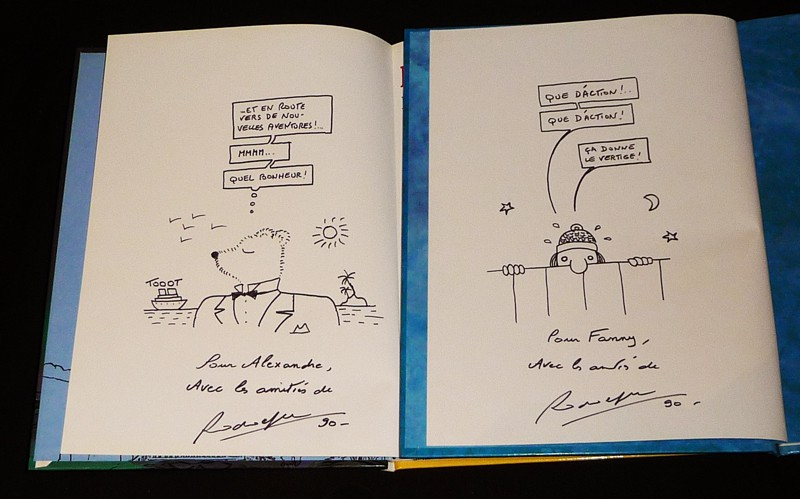 ..ET EN ROUTE
VERS DE NOU-
VELLES AVENTURES!..
MMMM...
QUEL BONHEUR!
TOOOT
Pour Alexandre,
Avec les amitiés de
90-
QUE D'ACTION!..
QUE D'ACTION!
ÇA DONNE
LE VERTIGE!
Pour Fanny,
Avec les amitiés de
90-